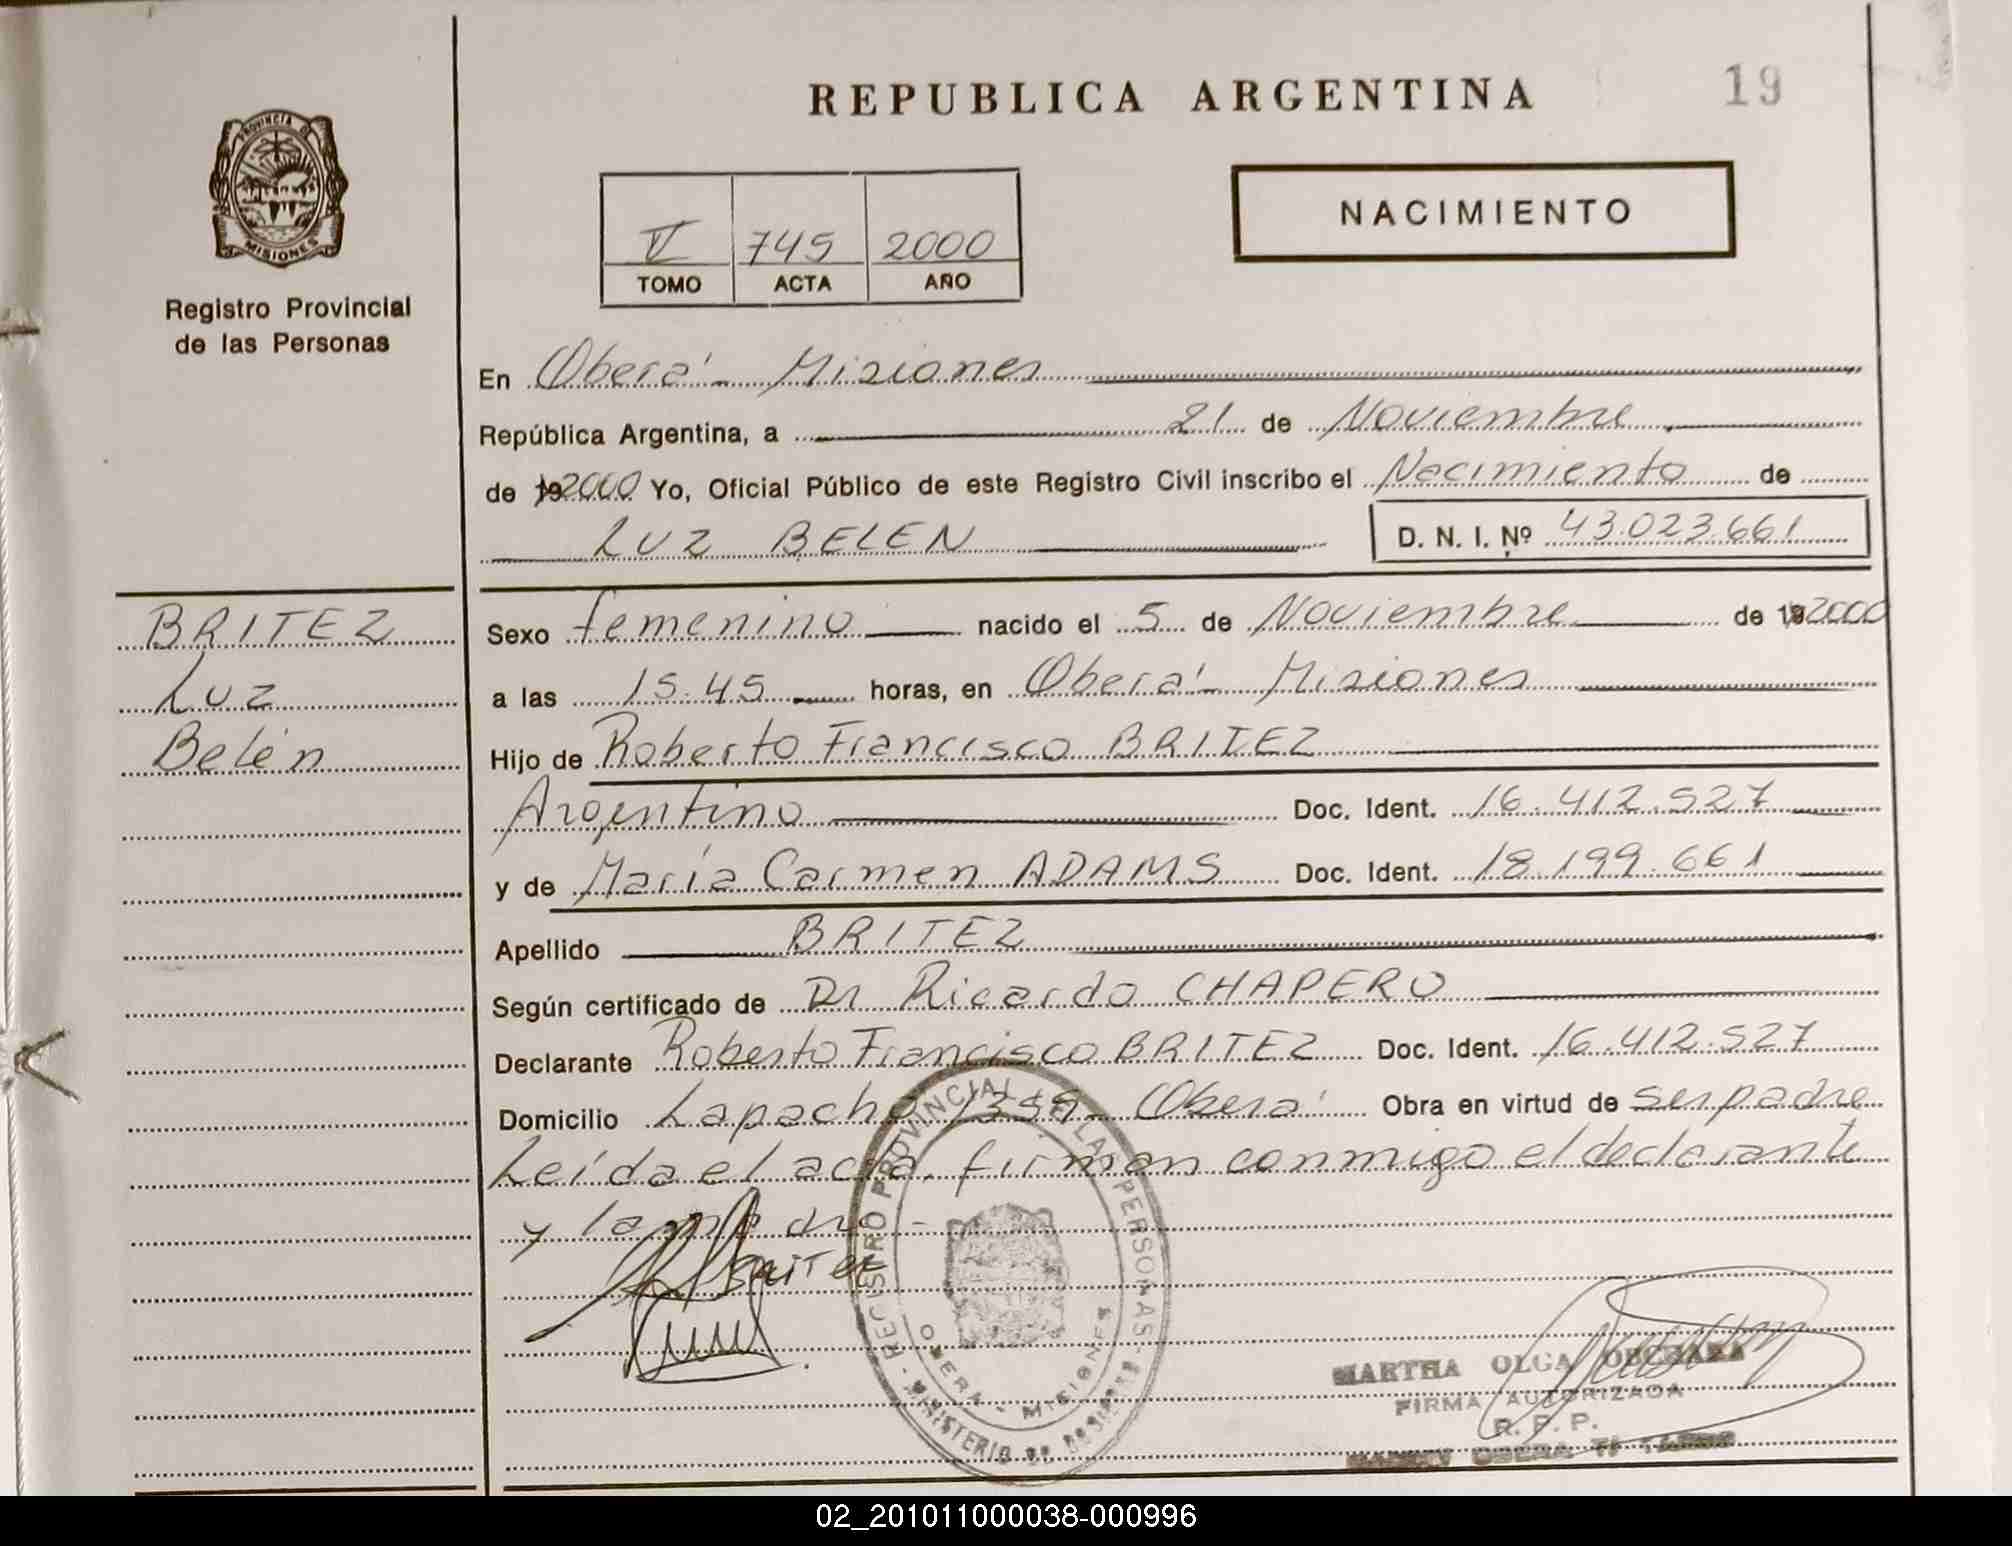 REPUBLICA ARGENTINA
19
PROVINCIA DE
MISIONES
Registro Provincial
de las Personas
V 745 2000
TOMO ACTA AÑO
NACIMIENTO
En Oberá - Misiones
República Argentina, a 21 de Noviembre
de 19 2000 Yo, Oficial Público de este Registro Civil inscribo el Nacimiento de
LUZ BELEN D. N. I. Nº 43.023.661
BRITEZ
Luz
Belén
Sexo femenino nacido el 5 de Noviembre de 19 2000
a las 15.45 horas, en Oberá - Misiones
Hijo de Roberto Francisco BRITEZ
Argentino Doc. Ident. 16.412.527
y de María Carmen ADAMS Doc. Ident. 18.199.661
Apellido BRITEZ
Según certificado de Dr Ricardo CHAPERO
Declarante Roberto Francisco BRITEZ Doc. Ident. 16.412.527
Domicilio Lapacho Oberá Obra en virtud de ser padre
Leída el acta, firman conmigo el declarante
y la madre -
Britez
REGISTRO PROVINCIAL DE LAS PERSONAS
OBERA - MISIONES
MINISTERIO DE GOBIERNO
MARTHA OLGA
FIRMA AUTORIZADA
R. P. P.
OBERA
02_201011000038-000996